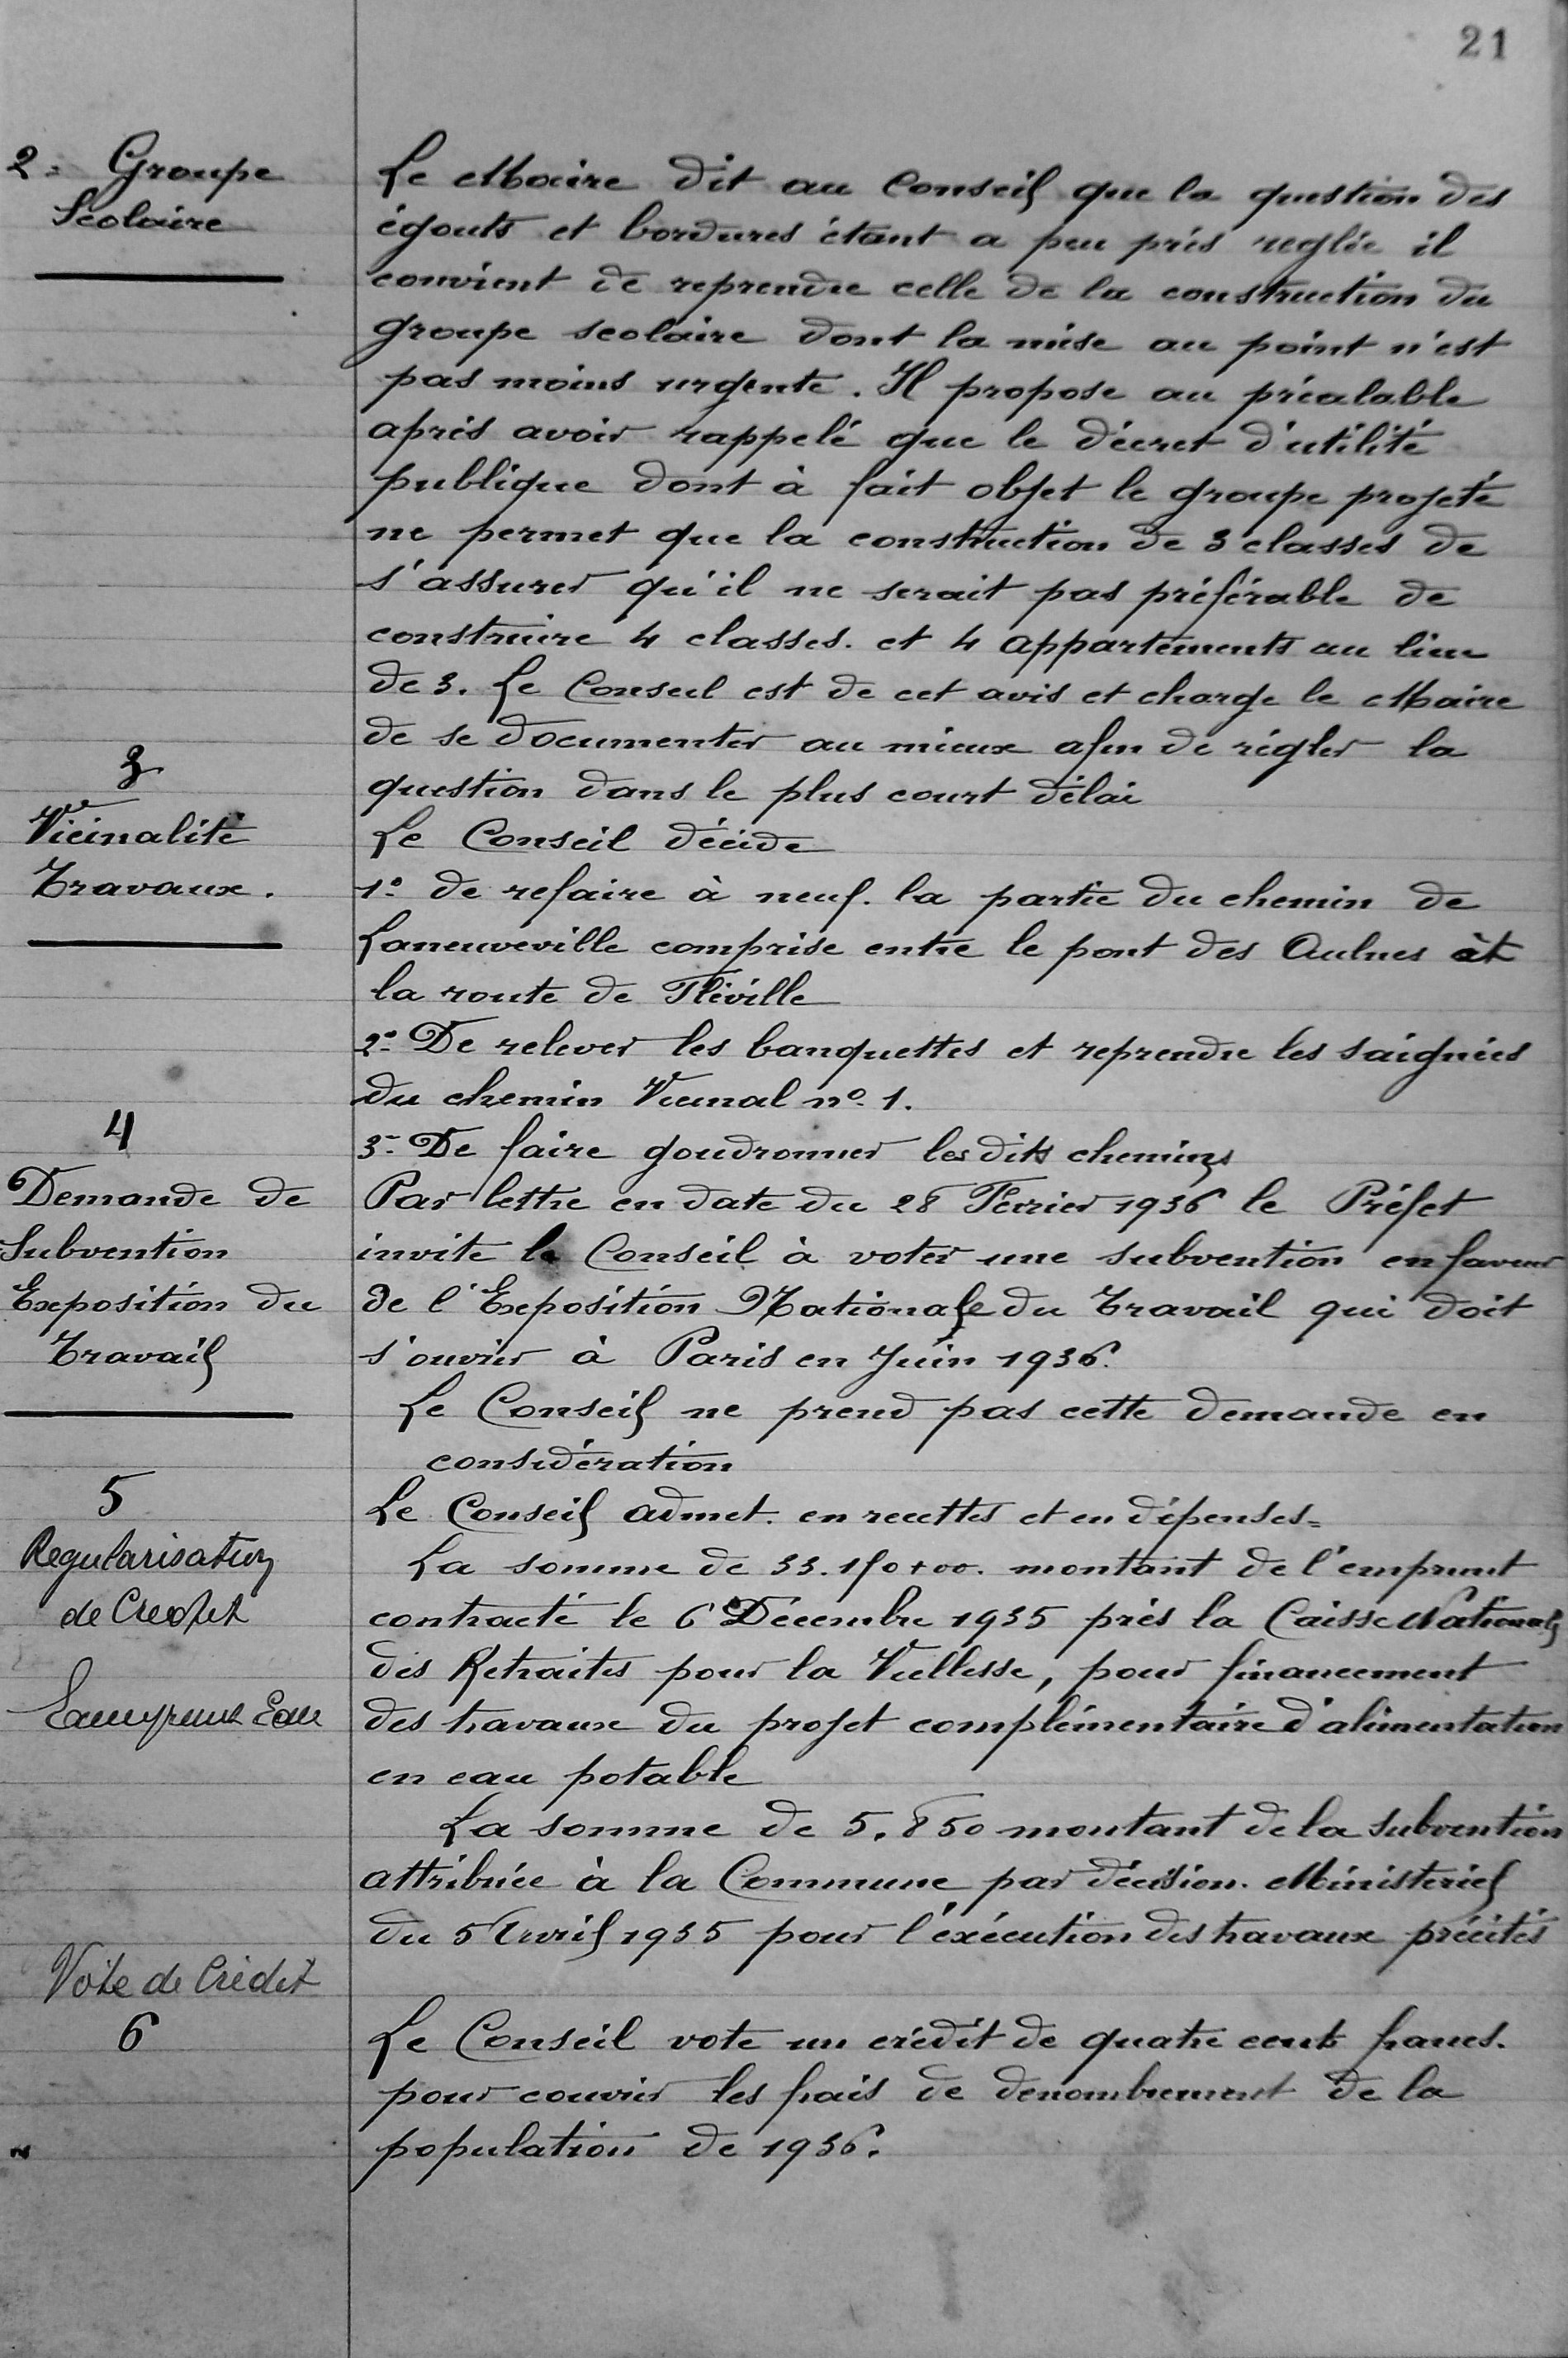 21
2= Groupe
Scolaire
Le Maire dit au Conseil que la question des
égouts et bordures étant a peu près reglée il
convient de reprendre celle de la construction du
groupe scolaire dont la mise au point n'est
pas moins urgente. Il propose au préalable
après avoir rappelé que le décret d'utilité
publique dont à fait objet le groupe projeté
ne permet que la construction de 3 classes de
s'assurer qu'il ne serait pas préférable de
construire 4 classes. et 4 appartements au lieu
de 3. Le Conseil est de cet avis et charge le Maire
de se documenter au mieux afin de régler la
question dans le plus court délai
3
Vicinalité
Travaux.
Le Conseil décide
1º de refaire à neuf. la partie du chemin de
Laneuveville comprise entre le pont des Aulnes et
la route de Fléville
2º De relever les banquettes et reprendre les saignées
du chemin Vicinal nº 1.
3- De faire goudronner les dits chemins
4
Demande de
Subvention
Exposition du
Travail
Par lettre en date du 28 Février 1936 le Préfet
invite le Conseil à voter une subvention en faveur
de l'Exposition Nationale du Travail qui doit
s'ouvrir à Paris en Juin 1936.
Le Conseil ne prend pas cette demande en
considération
5
Regularisation
de Credit
Emprunt Eau
Le Conseil admet. en recettes et en dépenses=
La somme de 33. montant de l'emprunt
contracté le 6 Décembre 1935 près la Caisse Nationale
des Retraites pour la Viellesse, pour financement
des travaux du projet complémentaire d'alimentation
en eau potable
La somme de 5.850 montant de la subvention
attribuée à la Commune par décision. Ministeriel
du 5 Avril 1935 pour l'éxécution des travaux précités
Vote de Crédit
6
Le Conseil vote un crédit de quatre cents francs.
pour couvrir les frais de denombrement de la
population de 1936.